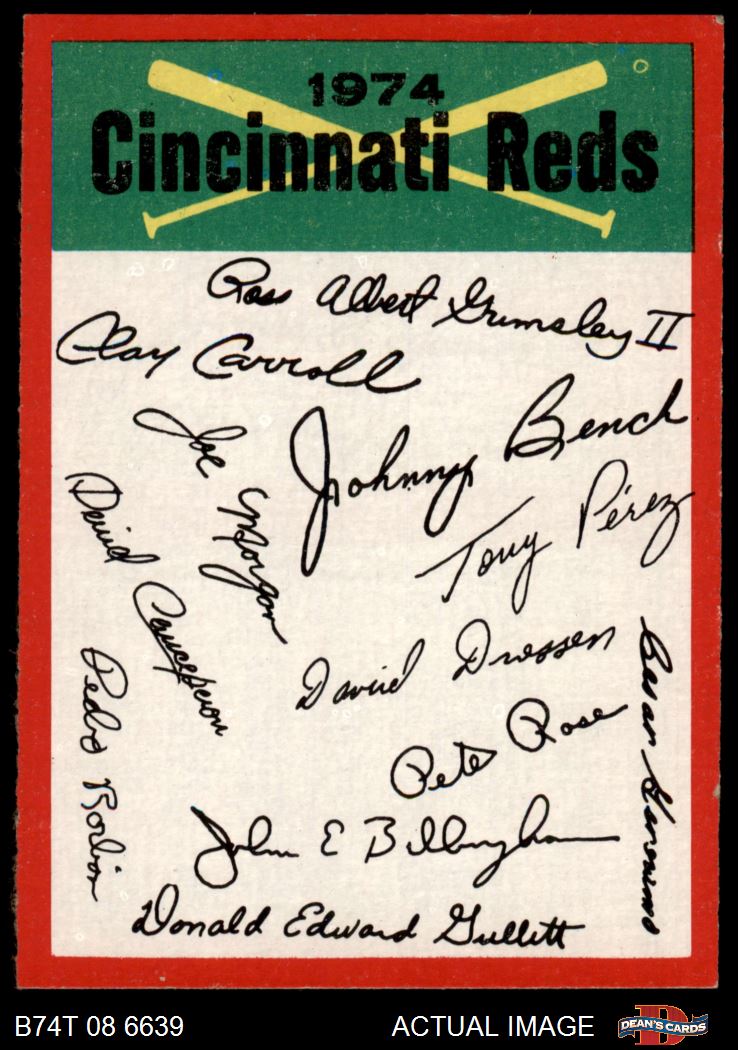 1974
Cincinnati Reds
Ross Albert Grimsley II
Clay Carroll
Johnny Bench
Joe Morgan
Tony Pérez
David Concepcion
David Driessen
Cesar Geronimo
Pete Rose
Pedro Borbon
John E Billingham
Donald Edward Gullett
B74T 08 6639
ACTUAL IMAGE
D
DEAN'S CARDS